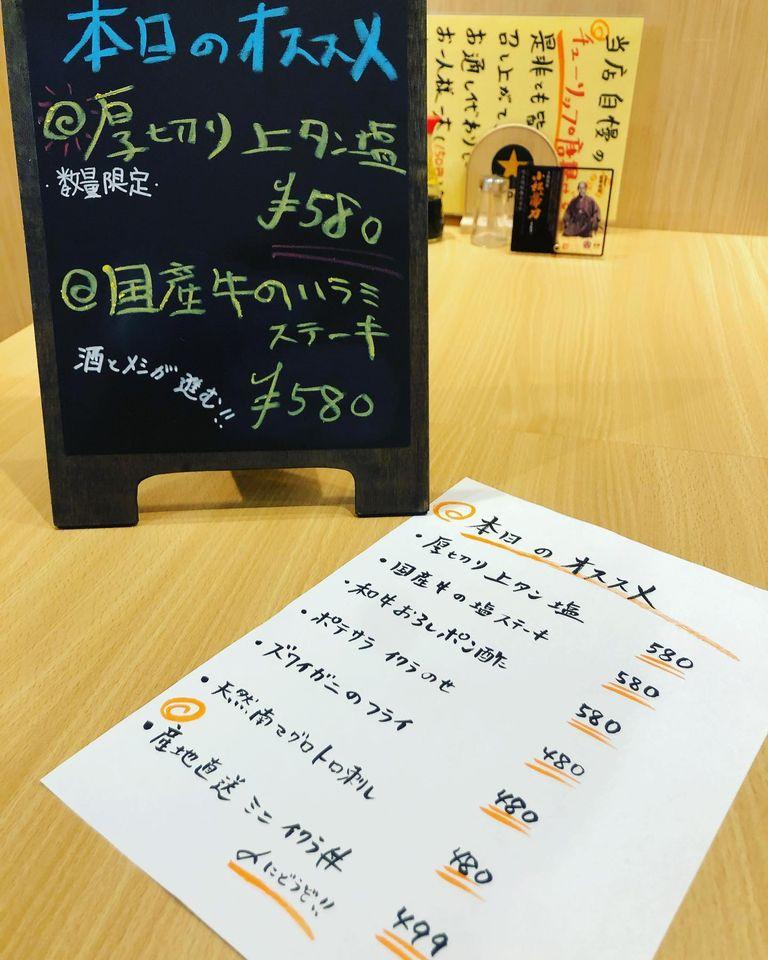 本日のオススメ
@厚切り上タン塩
・数量限定・
¥580
@国産牛のハラミ
ステーキ
酒とメシが進む!!
¥580
当店自慢の
チューリップ唐揚
是非とも皆
召し上がて
お通し代わり
お一人様一本
(150円
@本日のオススメ
・厚切り上タン塩 580
・国産牛の塩ステーキ 580
・和牛おろしポン酢 580
・ポテサラ イクラのせ 480
・ズワイガニのフライ 480
・天然南マグロトロ刺し 480
@
・産地直送 ミニ イクラ丼 499
〆にどうぞ!!